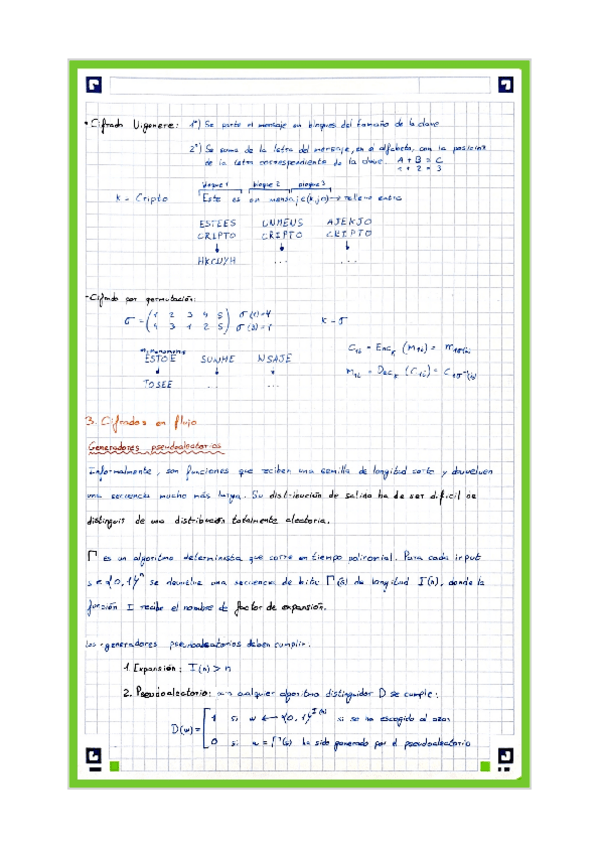 • Cifrado Vigenere: 1º) Se parte el mensaje en bloques del tamaño de la clave
2º) Se suma de la letra del mensaje, en el alfabeto, con la posicion
de la letra correspondiente de la clave. A + B = C
1 + 2 = 3
bloque 1 bloque 2 bloque 3
K = Cripto Este es un mensaje relleno extra
ESTEES UNMENS AJEXJO
CRIPTO CRIPTO CRIPTO
↓ ↓ ↓
HKCUYH ... ...
- Cifrado por permutación:
σ = (1 2 3 4 5) σ(1)=4
(4 3 1 2 5) σ(3)=1 K = σ
ESTOE SUNME NSAJE
↓ ↓ ↓
TOSEE ... ...
3. Cifrados en flujo
Generadores pseudoaleatorios
Informalmente, son funciones que reciben una semilla de longitud corta y devuelven
una secuencia mucho más larga. Su distribución de salida ha de ser dificil de
distinguir de una distribución totalmente aleatoria.
Γ es un algoritmo determinista que corre en tiempo polinomial. Para cada input
s ∈ {0,1}ⁿ se devuelve una secuencia de bits Γ(s) de longitud I(n), donde la
función I recibe el nombre de factor de expansión.
Los generadores pseudoaleatorios deben cumplir:
1. Expansión: I(n) > n
2. Pseudoaleatorio: cualquier algoritmo distinguidor D se cumple:
D(w) = [ 1 si w ← {0,1}^I(n) si se ha escogido al azar
0 si w = Γ(s) ha sido generado por el pseudoaleatorio